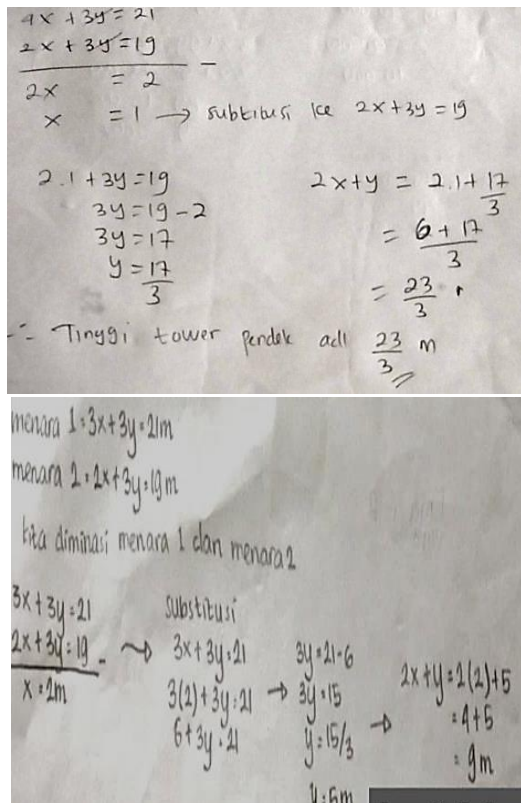 4x + 3y = 21
2x + 3y = 19
2x = 2
x = 1 → subtitusi ke 2x + 3y = 19
2.1 + 3y = 19
3y = 19 - 2
3y = 17
y = 17/3
2x + y = 2.1 + 17/3
= 6 + 17/3
= 23/3
∴ Tinggi tower pendek adl 23/3 m
menara 1 = 3x + 3y = 21m
menara 2 = 2x + 3y = 19m
kita eliminasi menara 1 dan menara 2
3x + 3y = 21
2x + 3y = 19 -
x = 2m
substitusi
3x + 3y = 21
3(2) + 3y = 21
6 + 3y = 21
3y = 21 - 6
3y = 15
y = 15/3
y = 5m
2x + y = 2(2) + 5
= 4 + 5
= 9m